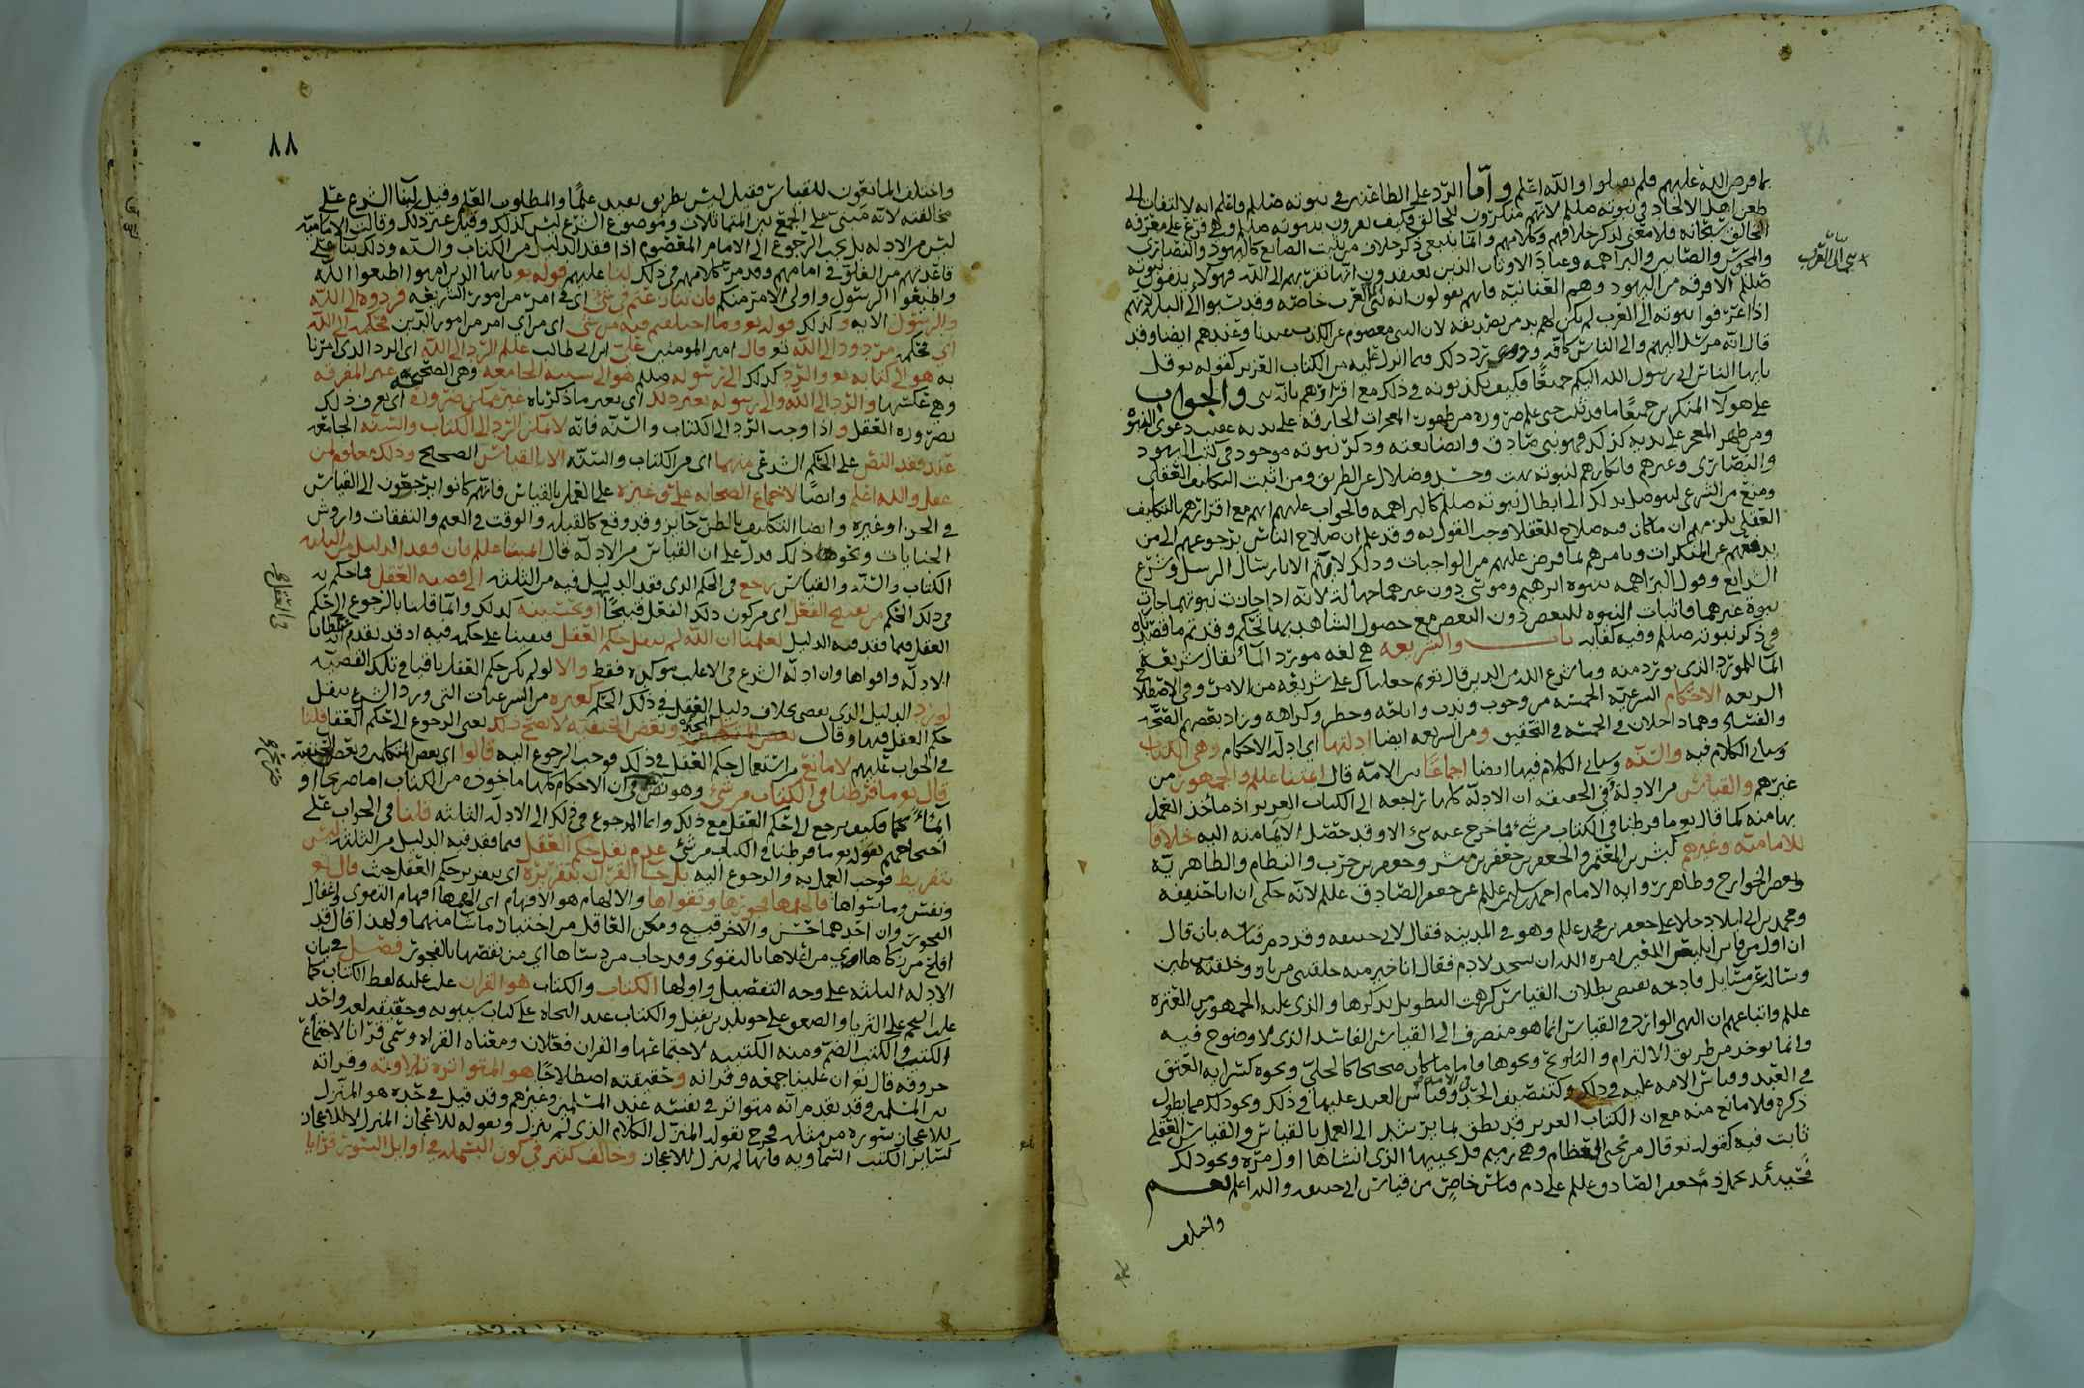 بما فرض الله عليهم فلم يصلوا والله اعلم واما الرد على الطاعنين في نبوته صللم فاعلم انه لا التفات الى
طعن اهل الالحاد في نبوته صللم لانهم منكرون للخالق فكيف يقرون بنبوته صللم وهي فرع على معرفة
الخالق سبحانه فلا معنى لذكر خلافهم وكلامهم وانما ينبغي ذكر خلاف من يثبت الصانع كاليهود والنصارى
والمجوس والصابين والبراهمه وعباد الاوثان الذين يعتقدون انها تقربهم الى الله فهولا يدفعون نبوته
صللم الا فرقه من اليهود وهم العنانيه فانهم يقولون انه نبي العرب خاصه وقد نسبوا الى البله لانهم
اذا اعترفوا بنبوته الى العرب لم يكن لهم بد من تصديقه لان النبي معصوم عن الكذب عندنا وعندهم ايضا وقد
قال انه مرسل اليهم والى الناس كافه و يرد ذلك فيما انزل عليه من الكتاب العزيز كقوله تع قل
يا ايها الناس اني رسول الله اليكم جميعا فكيف يكذبونه في ذلك مع اقرارهم بانه نبي والجواب
على هولا المنكرين جميعا ما قد ثبت حتى علم ضروره من ظهور المعجزات الخارقه على يديه عقيب دعوى النبوه
ومن ظهر المعجز على يديه كذلك فهو نبي صادق وايضا نعته وذكر نبوته موجود في كتب اليهود
والنصارى وغيرهم فانكارهم لنبوته بهت وحسد وضلال عن الطريق ومن اثبت التكليف العقلي
ومنع من الشرعي ليتوصل بذلك الى ابطال نبوته صللم كالبراهمه فالجواب عليهم انهم مع اقرارهم بالتكليف
العقلي يلزمهم ان ما كان فيه صلاح للعقلا وجب القول به وقد علم ان صلاح الناس برجوعهم الى من
يدفعهم عن المنكرات ويامرهم بما فرض عليهم من الواجبات وذلك لا يتم الا بارسال الرسل وشرع
الشرايع وقول البراهمه بنبوه ابرهيم وموسى دون غيرهما جهاله لانه اذا جازت نبوتهما جازت
نبوة غيرهما فاثبات النبوه للبعض دون البعض مع حصول الشاهد بها تحكم وقد تم ما قصدناه
في ذكر نبوته صللم وفيه كفايه باب والشريعه هي لغه مورد الماء يقال شريعة
الما للمورد الذي يورد منه وما شرع الله من الدين قال تع ثم جعلناك على شريعة من الامر وفي الاصطلاح
الشريعه الاحكام الشرعيه الخمسه من وجوب وندب واباحه وحظر وكراهه وزاد بعضهم الصحه
والفساد وهما داخلان في الخمسه في التحقيق ومن الشريعه ايضا ادلتها اي ادلة الاحكام وهي الكتاب
وسياتي الكلام فيه والسنه وسياتي الكلام فيها ايضا اجماعا بين الامه قال ائمتنا عللم والجمهور من
غيرهم والقياس من الادلة في الحقيقه ان الادله كلها راجعه الى الكتاب العزيز اذ ماخذ العمل
بها منه كما قال تع ما فرطنا في الكتاب من شي فما خرج عنه شي الا وقد حصل الايما منه اليه خلافا
للاماميه وغيرهم كبشر بن المعتمر والجعفرين جعفر بن مبشر وجعفر بن حرب والنظام والظاهرية
وبعض الخوارج وطاهر روايه الامام احمد بن سليمن عللم عن جعفر الصادق عللم لانه حكى ان ابا حنيفه
ومحمد بن ابي ليلا دخلا على جعفر بن محمد عللم وهو في المدينه فقال لابي حنيفه وقد ذم قياسه بان قال
ان اول من قاس ابليس اللعين امره الله ان يسجد لادم فقال انا خير منه خلقتني من نار وخلقته من طين
وساله عن مسايل قادحه تقضي ببطلان القياس كرهت التطويل بذكرها والذي عليه الجمهور من العتره
عللم واتباعهم ان النهي الوارد في القياس انما هو منصرف الى القياس الفاسد الذي لا وضوح فيه
وانما يوخذ من طريق الالتزام والتلويح ونحوها واما ما كان صحيحا كالجلي ونحوه كسراية العتق
في العبد وقياس الامه عليه في ذلك وكتنصيف الحد وقياس العبد عليها في ذلك ونحو ذلك مما يطول
ذكره فلا مانع منه مع ان الكتاب العزيز قد نطق بما يرشد الى العمل بالقياس والقياس العقلي
ثابت فيه كقوله تع قال من يحيي العظام وهي رميم قل يحييها الذي انشاها اول مرة ونحو ذلك
فحينئذ يحمل ذم جعفر الصادق عللم على ذم قياس خاص من قياس ابي حنيفه والله اعلم نعم
واختلف
٨٨
واختلف المانعون للقياس فقيل ليس بطريق يفيد علما والمطلوب العلم وقيل لبنا الشرع على
مخالفته لانه مبني على الجمع بين المتماثلات وموضوع الشرع ليس كذلك وقيل غير ذلك وقالت الاماميه
ليس من الادله بل يجب الرجوع الى الامام المعصوم اذا فقد الدليل من الكتاب والسنه وذلك بنا على
قاعدتهم من الغلو في امامهم وقد مر كلامهم في ذلك لنا عليهم قوله تع يا ايها الذين امنوا اطيعوا الله
واطيعوا الرسول واولي الامر منكم فان تنازعتم في شي اي في امر من امور الشريعه فردوه الى الله
والرسول الايه وكذلك قوله تع وما اختلفتم فيه من شي اي من اي امر من امور الدين فحكمه الى الله
اي فحكمه مردود الى الله تع قال امير المومنين علي بن ابي طالب عللم الرد الى الله اي الرد الذي امرنا
به هو الى كتابه تع والرد كذلك الى رسوله صللم هو الى سنته الجامعه وهي الصحيحه غير المفرقه
وهي عكسها والرد الى الله والى رسوله بغير ذلك اي بغير ما ذكرناه غير ممكن ضرورة اي يعرف ذلك
بضرورة العقل واذا وجب الرد الى الكتاب والسنه فانه لا يمكن الرد الى الكتاب والسنه الجامعه
عند فقد النص على الحكم الشرعي منهما اي من الكتاب والسنه الا بالقياس الصحيح وذلك معلوم لمن
عقل والله اعلم وايضا لاجماع الصحابه علي وغيره على العمل بالقياس فانهم كانوا يرجعون الى القياس
في الجد او غيره وايضا التكليف بالظن جايز وقد وقع كالقبله والوقت في الغيم والنفقات واروش
الجنايات ونحو ذلك فدل على ان القياس من الادله قال ائمتنا عللم فان فقد الدليل من الثلثه
الكتاب والسنه والقياس رجع في الحكم الذي فقد الدليل فيه من الثلثه الى قضية العقل فما حكم به
في ذلك الحكم من تقبيح الفعل اي من كون ذلك الفعل قبيحا او تحسينه كذلك وانما قلنا بالرجوع الى حكم
العقل فيما فقد فيه الدليل لعلمنا ان الله لم ينقل حكم العقل فبقينا على حكمه فيه اذ قد تقدم انه
الادله واقواها وان ادلة الشرع في الاغلب موكده فقط والا لو لم يكن حكم العقل باقيا في تلك القضيه
لورد الدليل الذي يقضي بخلاف دليل العقل في ذلك الحكم كغيره من الشرعيات التي ورد الشرع بنقل
حكم العقل فيها وقال بعض المتكلمين وبعض الحنفيه لا يصح ذلك يعني الرجوع الى حكم العقل قلنا
في الجواب عليهم لا مانع من استعمال حكم العقل في ذلك فوجب الرجوع اليه قالوا اي بعض المتكلمين وبعض الحنفيه
قال تع ما فرطنا في الكتاب من شي وهو نص في ان الاحكام كلها ماخوذه من الكتاب اما صريحا او
ايماء فكيف يرجع الى حكم العقل مع ذلك وانما المرجوع في ذلك الى الادله الثلثه قلنا في الجواب على
احتجاجهم بقوله تع ما فرطنا في الكتاب من شي عدم نقل حكم العقل فيما فقد فيه الدليل من الثلثه ليس
بتفريط فوجب العمل به والرجوع اليه بل جاء القران بتقريره اي بتقرير حكم العقل حيث قال تع
ونفس وما سواها فالهمها فجورها وتقواها والالهام هو الافهام اي افهمها افهام التقوى وافعال
الفجور وان احدهما حسن والاخر قبيح ومكن العاقل من اختيار ما شا منهما ولهذا قال قد
افلح من زكاها اي من اعلاها بالتقوى وقد خاب من دساها اي من نقصها بالفجور فصل في بيان
الادله الثلثه على وجه التفصيل واولها الكتاب والكتاب هو القران غلب عليه لفظ الكتاب كما
غلب النجم على الثريا والصعق على خويلد بن نفيل والكتاب عند النحاه على كتاب سيبويه وحقيقته لغه واخذ
الكتب والكتب الضم ومنه الكتيبه لاجتماعها والقران فعلان ومعناه القراه وسمي قرانا لاجتماع
حروفه قال تع ان علينا جمعه وقرانه وحقيقته اصطلاحا هو المتواتره تلاوته وقرانه
بين المسلمين وقد تقدم انه متواتر في نفسه عند المسلمين وغيرهم وقد قيل في حده هو المنزل
للاعجاز بسوره من مثله فخرج بقوله المنزل الكلام الذي لم ينزل وبقوله للاعجاز المنزل لا للاعجاز
كساير الكتب السماويه فانها لم ينزل للاعجاز وخالف كثير في كون البسمله في اوايل السور قرانا